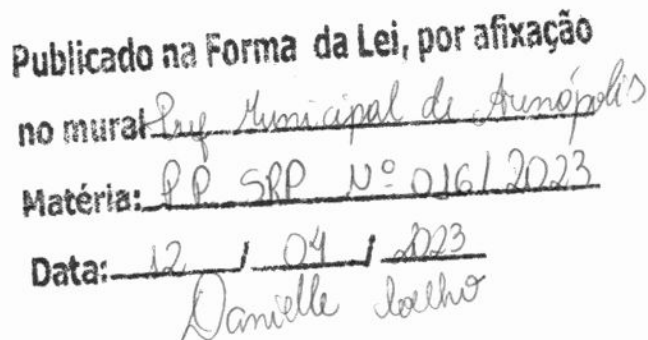 Publicado na Forma da Lei, por afixação
no mural Pref Municipal de Arenópolis
Matéria: PP SRP Nº 016/2023
Data: 12 / 04 / 2023
Danielle Coelho